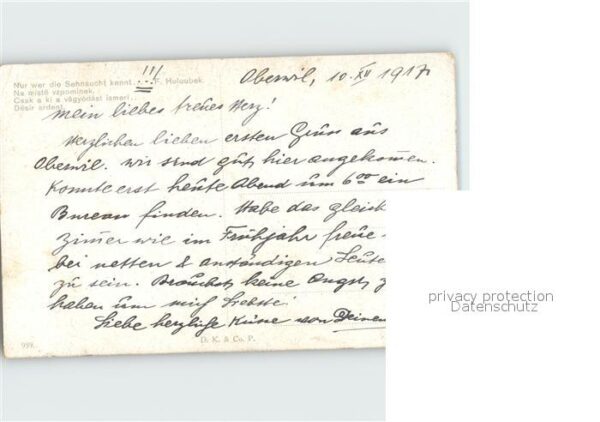 Nur wer die Sehnsucht kennt . . . F. Huloubek.
Na místě vzpomínek.
Csak a ki a vágyódást ismeri . .
Désir ardent.
!!!
Oberwil, 10. XII 1917.
Mein liebes treues Herz!
Herzlichen lieben ersten Gruss aus
Oberwil. Wir sind gut hier angekommen.
Konnte erst heute Abend um 6 00 ein
Bureau finden. Habe das gleich
Zimmer wie im Frühjahr freue
bei netten & anständigen Leute
zu sein. Brauchst keine Angst z
haben um mich Liebste!
Liebe herzliche Küsse von Deinem
959.
D. K. & Co. P.
privacy protection
Datenschutz